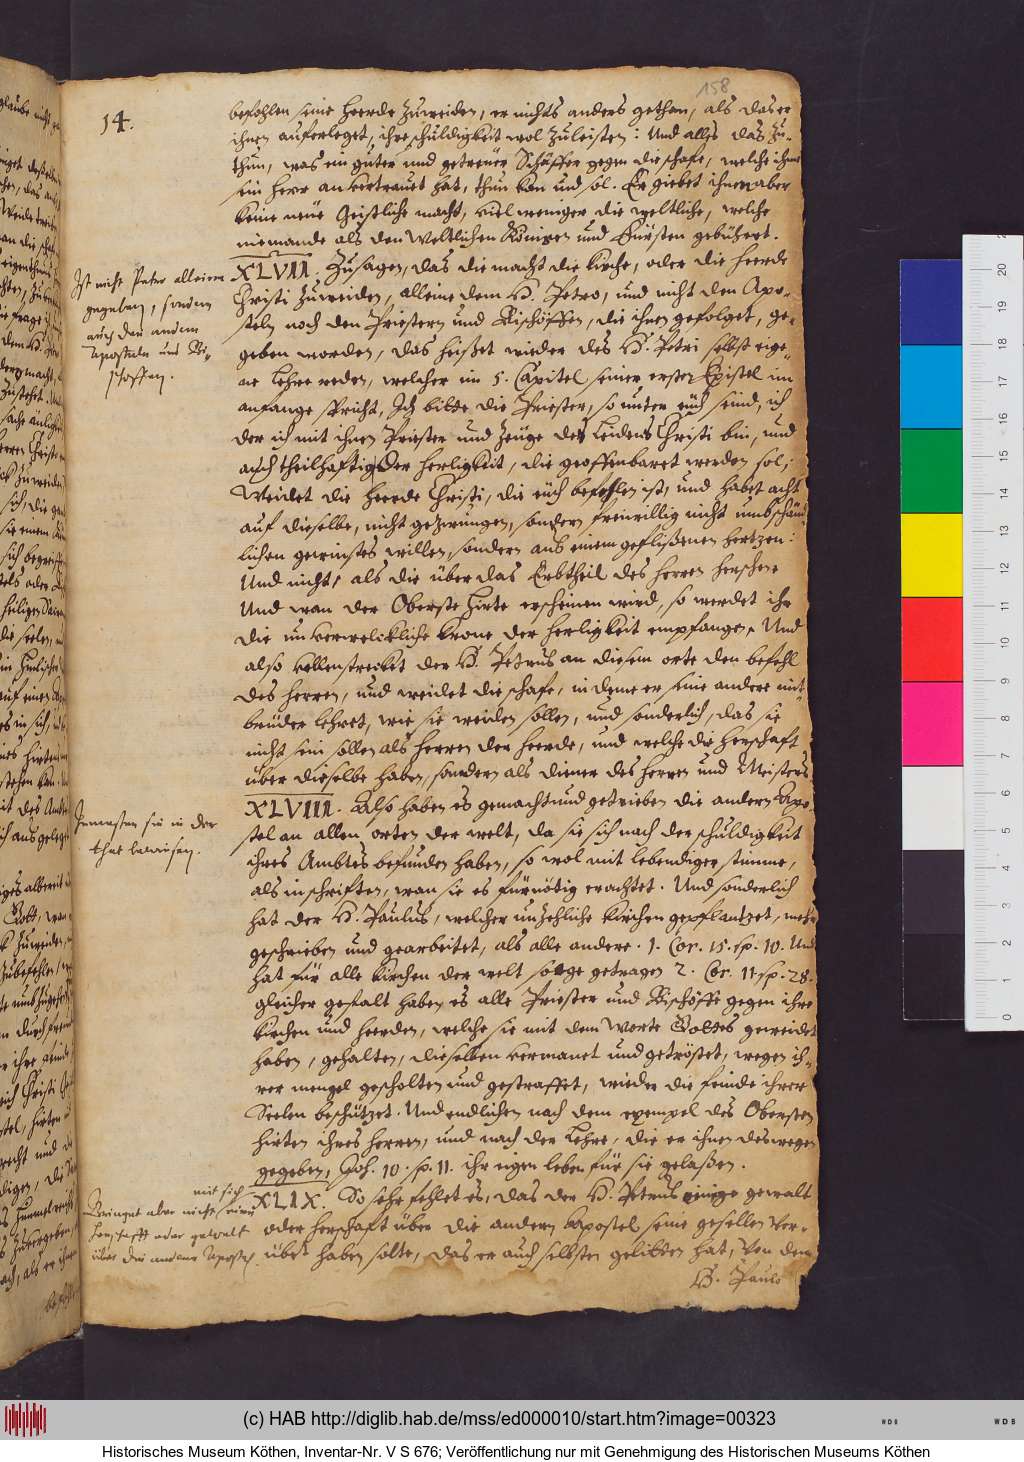 158
14.
befohlen seine Heerde zuweiden, er nichts anders gethan, als das er
ihnen auferleget, ihre schuldigkeit wol zuleisten: Und alles das zu-
thun, was ein guter und getreuer Schäffer gegen die schafe, welche ihme
sein Herr anvertrauet hat, thun kan und sol. Er giebet ihnen aber
keine neüe Geistliche macht, viel weniger die weltliche, welche
niemande als den Weltlichen Königen und Fürsten gebühret.
Ist nicht Peter alleine
gegeben, sondern
auch den andern
Aposteln und Bi-
schoffen.
XLVII. Zusagen, das die macht die Kirche, oder die Heerde
Christi zuweiden, alleine dem H. Petro, und nicht den Apo-
steln noch den Priestern und Bischöffen, die ihnen gefolget, ge-
geben worden, das heißet wieder des H. Petri selbst eige-
ne Lehre reden, welcher im 5. Capitel seiner ersten Epistel im
anfange spricht, Ich bitte die Priester, so unter eüch seind, ich
der ich mit ihnen Priester und Zeüge des Leidens Christi bin, und
auch theilhaftig der Herligkeit, die geoffenbaret werden sol;
Weidet die Heerde Christi, die eüch befohlen ist, und habet acht
auf dieselbe, nicht gezwungen, sondern freiwillig nicht umb schänd-
lichen gewinstes willen, sondern aus einem geflißenen Hertzen:
Und nicht, als die über das Erbtheil des Herren herschen
Und wan der Oberste Hirte erscheinen wird, so werdet ihr
die unverwelckliche Krone der Herligkeit empfangen. Und
also vollenstrecket der H. Petrus an diesem orte den befehl
des Herren, und weidet die schafe, in deme er seine andere mit-
brüder lehret, wie sie weiden sollen, und sonderlich, das sie
nicht sein sollen als Herren der Heerde, und welche die Herschaft
über dieselbe haben, sondern als diener des Herren und Meisters
Inmassen sie in der
that bewiesen.
XLVIII. Also haben es gemacht und getrieben die andern Apo-
stel an allen orten der welt, da sie sich nach der schuldigkeit
ihres Ambtes befunden haben, so wol mit lebendiger stimme,
als in schriften, wan sie es für nötig erachtet. Und sonderlich
hat der H. Paulus, welcher unzehliche Kirchen gepflantzet, mehr
geschrieben und gearbeitet, als alle andere. 1. Cor. 15. sp. 10. Und
hat für alle Kirchen der welt sorge getragen 2. Cor. 11. sp. 28.
gleicher gestalt haben es alle Priester und Bischöffe gegen ihre
Kirchen und Heerden, welche sie mit dem Worte Gottes geweidet
haben, gehalten, dieselben vermanet und getröstet, wegen ih-
rer mengel gescholten und gestraffet, wieder die feinde ihrer
Seelen beschützet. Und endlichen nach dem exempel des Obersten
Hirten ihres Herren, und nach der Lehre, die er ihnen deswegen
gegeben, Joh. 10. sp. 11. ihr eigen leben für sie gelaßen.
mit sich
Bringet aber nicht eine
Herschafft oder gewalt
über die andere Apostel.
XLIX. So sehr fehlet es, das der H. Petrus einige gewalt
oder Herschaft über die andern Apostel seine gesellen ver-
übet haben solte, das er auch selbsten gelitten hat, von dem
H. Paulo
(c) HAB http://diglib.hab.de/mss/ed000010/start.htm?image=00323
Historisches Museum Köthen, Inventar-Nr. V S 676; Veröffentlichung nur mit Genehmigung des Historischen Museums Köthen